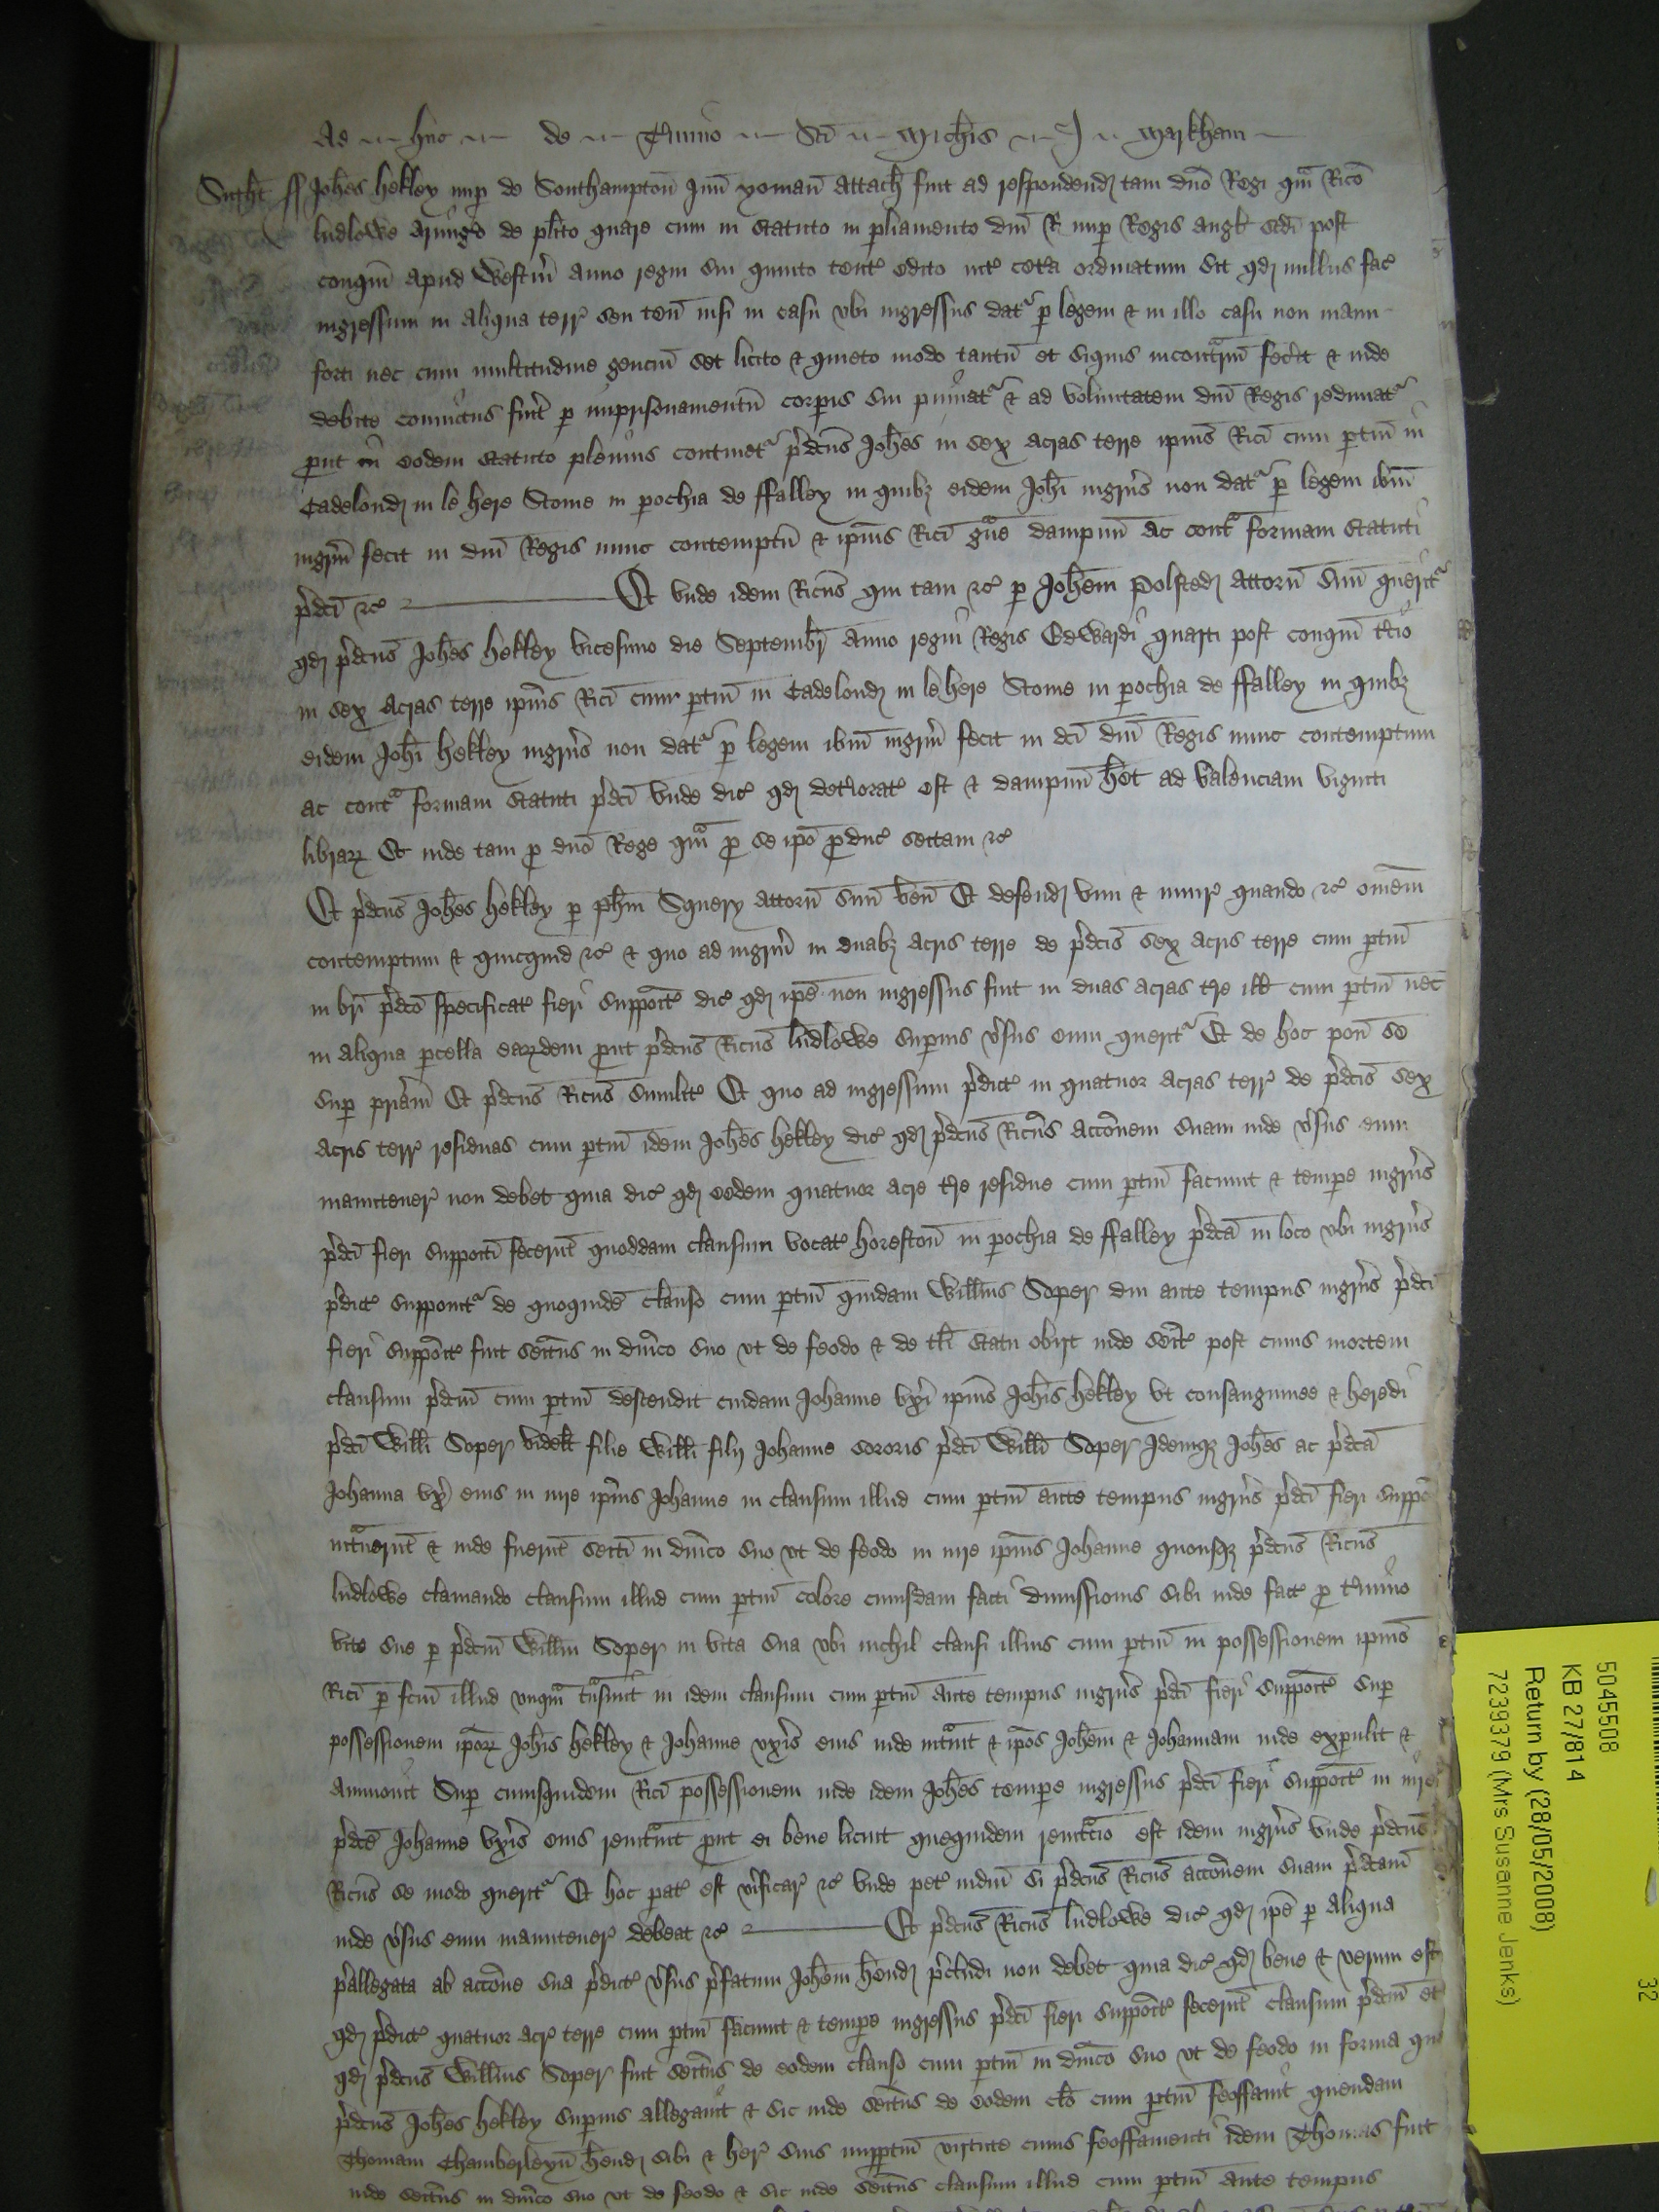 Ad huc de T'mino Sci Mich'is J Markham
Suth't ss Joh'es Hekley nup de Southampton Jun' yoman attach' fuit ad respondend' tam d'no Regi qm Ric'o
Ludlowe Armig'o de pl'ito quare cum in statuto in p'liamento d'ni R nup Regis Angl' s'c'di post
conqm apud Westm' anno regni sui quinto tent' edito int' cet'a ordinatum sit qd nullus fac'
ingressum in aliqua terr' seu ten' nisi in casu vbi ingressus dat' p legem & in illo casu non manu
forti nec cum multitudine gencium set licito & quieto modo tantu' et siquis incontr'm fec'it & inde
debite conuictus fu'it p imprisonamentu' corp'is sui puniat' & ad voluntatem d'ni Regis redimat'
put in eodem statuto plenius continet' p'dcus Joh'es in sex acras terre ip'ius Ric'i cum p'tin' in
Cadelond in le here Stone in p'ochia de ffalley in quibz eidem Joh'i ingr'us non dat' p legem ib'm
ingr'm fecit in d'ni Regis nunc contemptu' & ip'ius Ric'i g'ue dampnu' ac cont' formam statuti
p'dci &c' Et vnde idem Ric'us qui tam &c' p Joh'em Polsted attorn' suu' querit'
qd p'dcus Joh'es Hekley vicesimo die Septembr' anno regni Regis Edwardi quarti post conqm t'cio
in sex acras terre ip'ius Ric'i cum p'tin' in Cadelond in le here Stone in p'ochia de ffalley in quibz
eidem Joh'i Hekley ingr'us non dat' p legem ib'm ingr'm fecit in dc'i d'ni Regis nunc contemptum
ac cont' formam statuti p'dci vnde dic' qd det'iorat' est & dampnu' h'et ad valenciam viginti
librar' Et inde tam p d'no Rege qm p se ip'o p'duc' sectam &c'
Et p'dcus Joh'es Hekley p Ph'm Squery attorn' suu' ven' Et defend' vim & iniur' quando &c' om'em
contemptum & quicquid &c' & quo ad ingr'm in duabz acris terre de p'dcis sex acris terre cum p'tin'
in br'i p'dco specificat' fieri supposit' dic' qd ip'e non ingressus fuit in duas acras t're ill' cum p'tin' nec
in aliqua p'cella eardem put p'dcus Ric'us Ludlowe sup'ius v'sus eum querit' Et de hoc pon' se
sup pr'iam Et p'dcus Ric'us similit' Et quo ad ingressum p'dict' in quatuor acras terr' de p'dcis sex
acris terr' residuas cum p'tin' idem Joh'es Hekley dic' qd p'dcus Ric'us acc'onem suam inde v'sus eum
manutener' non debet quia dic' qd eedem quatuor acre t're residue cum p'tin' faciunt & tempe ingr'us
p'dci fieri suppositi fecerunt quoddam clausum vocat' Horeston in p'ochia de ffalley p'dca in loco vbi ingr'us
p'dict' supponit' de quoquide' clauso cum p'tin' quidam Will'us Soper diu ante tempus ingr'us p'dci
fieri supposit' fuit seitus in d'nico suo vt de feodo & de t'li statu obijt inde seit' post cuius mortem
clausum p'dcm cum p'tin' descendit cuidam Johanne vx'i ip'ius Joh'is Hekley vt consanguinee & heredi
p'dci Will'i Soper videl't filie Will'i filij Johanne sororis p'dci Will'i Soper Idemqz Joh'es ac p'dca
Johanna vx' eius in iure ip'ius Johanne in clausum illud cum p'tin' ante tempus ingr'us p'dci fieri suppo
int'uerunt & inde fuerunt seiti in d'nico suo vt de feodo in iure ip'ius Johanne quousqz p'dcus Ric'us
Ludlowe clamando clausum illud cum p'tin' colore cuiusdam facti dimissionis sibi inde fact' p t'mino
vite sue p p'dcm Will'm Soper in vita sua vbi nichil clausi illius cum p'tin' in possessionem ip'ius
Ric'i p fc'm illud vnqm t'nsiuit in idem clausum cum p'tin' ante tempus ingr'us p'dci fieri supposit' sup
possessionem ip'or' Joh'is Hekley & Johanne vx'is eius inde int'uit & ip'os Joh'em & Johannam inde expulit &
ammouit Sup cuiusquidem Ric'i possessionem inde idem Joh'es tempe ingressus p'dci fieri supposit' in iure
p'dce Johanne vx'is eius reint'uit put ei bene licuit quequidem reint'cio est idem ingr'us vnde p'dcus
Ric'us se modo querit' Et hoc pat' est v'ificar' &c' vnde pet' iudm' si p'dcus Ric'us acc'onem suam p'dcam
inde v'sus eum manutener' debeat &c' Et p'dcus Ric'us Ludlowe dic' qd ip'e p aliqua
p'allegata ab acc'one sua p'dict' v'sus p'fatum Joh'em h'end' p'cludi non debet quia dic' qd bene & verum est
qd p'dict' quatuor acr' terre cum p'tin' faciunt & tempe ingressus p'dci fieri supposit' fecerunt clausum p'dcm et
qd p'dcus Will'us Soper fuit seitus de eodem clauso cum p'tin' in d'nico suo vt de feodo in forma qu
p'dcus Joh'es Hekley sup'ius allegauit & sic inde seitus de eodem cl'o cum p'tin' feoffauit quendam
Thomam Chamberleyn h'end' sibi & her' suis imp'p'tm virtute cuius feoffamenti idem Thomas fuit
inde seitus in d'nico suo vt de feodo & sic inde seitus clausum illud cum p'tin' ante tempus
5045508
KB 27/814
Return by (28/05/2008)
7239379 (Mrs Susanne Jenks)
32